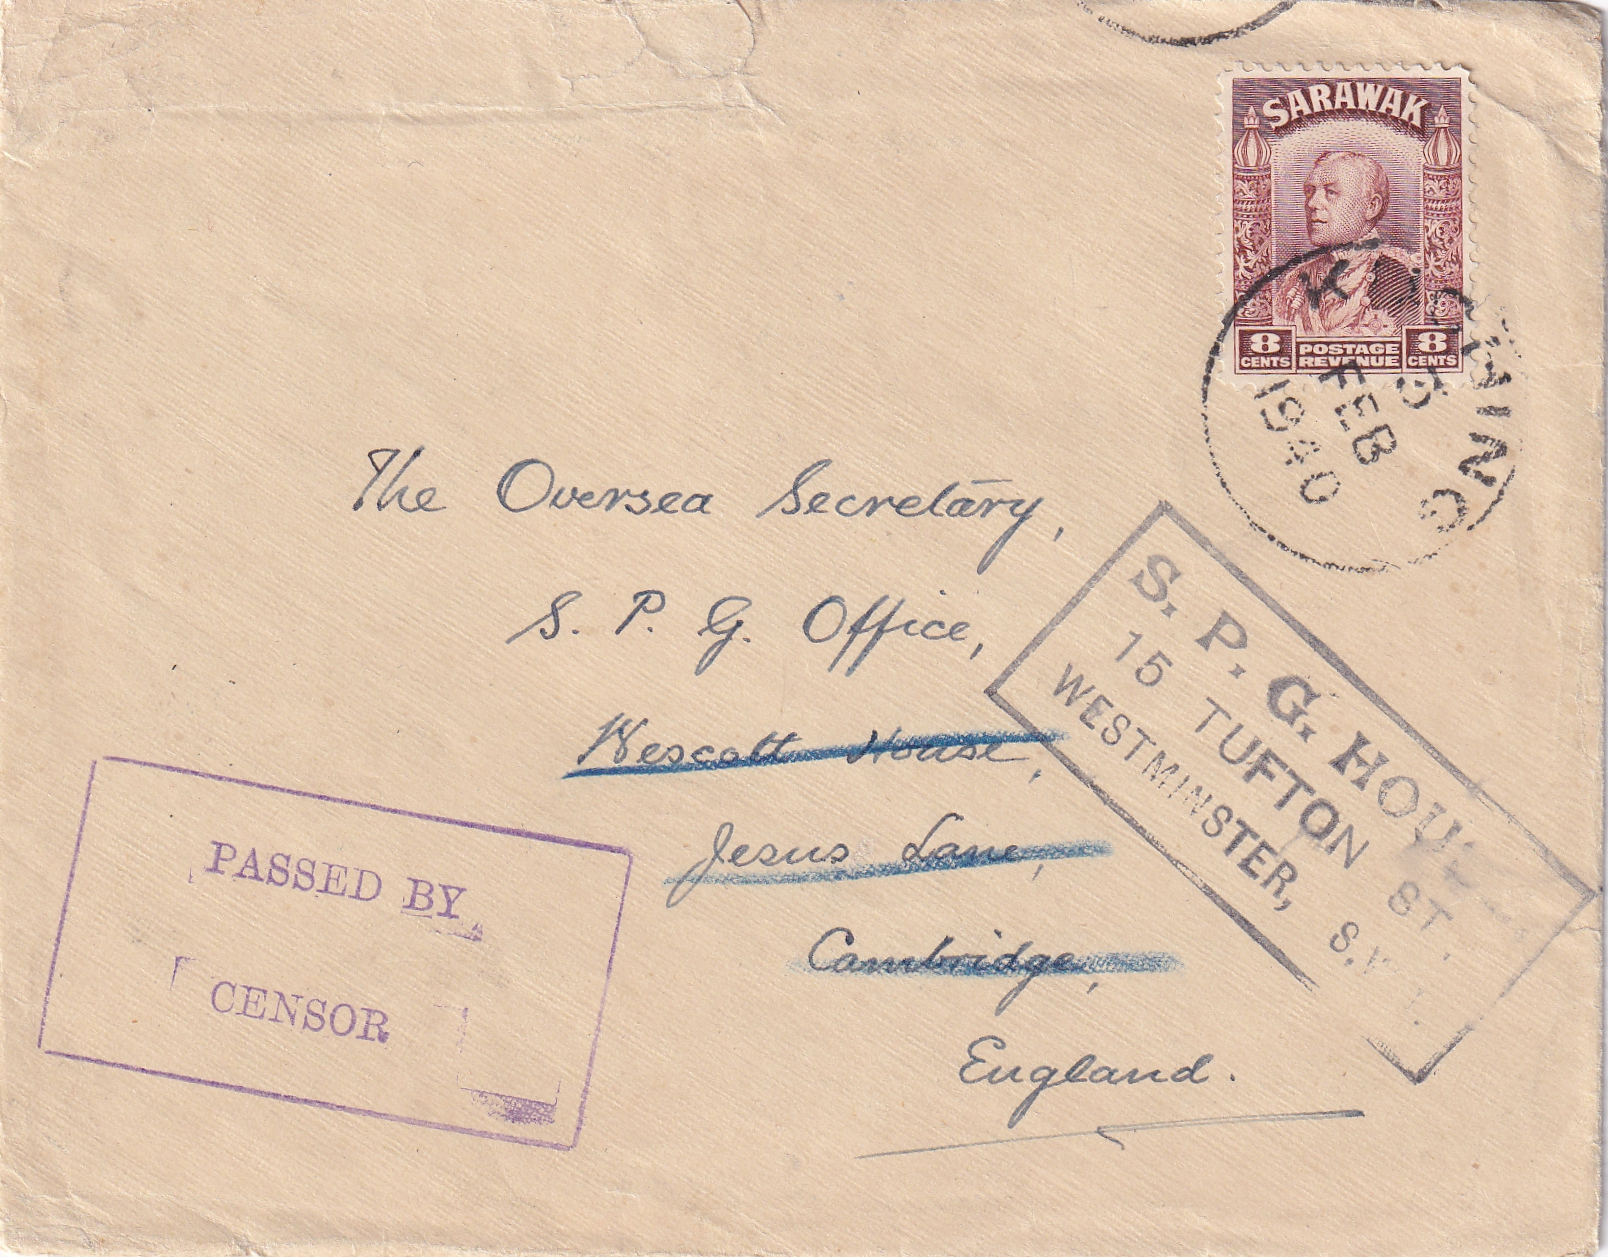 SARAWAK
8 CENTS
POSTAGE REVENUE
8 CENTS
KUCHING
5
FEB
1940
The Oversea Secretary,
S. P. G. Office,
Wescott House,
Jesus Lane,
Cambridge,
England.
S. P. G. HOU
15 TUFTON ST.
WESTMINSTER, S.
PASSED BY
CENSOR